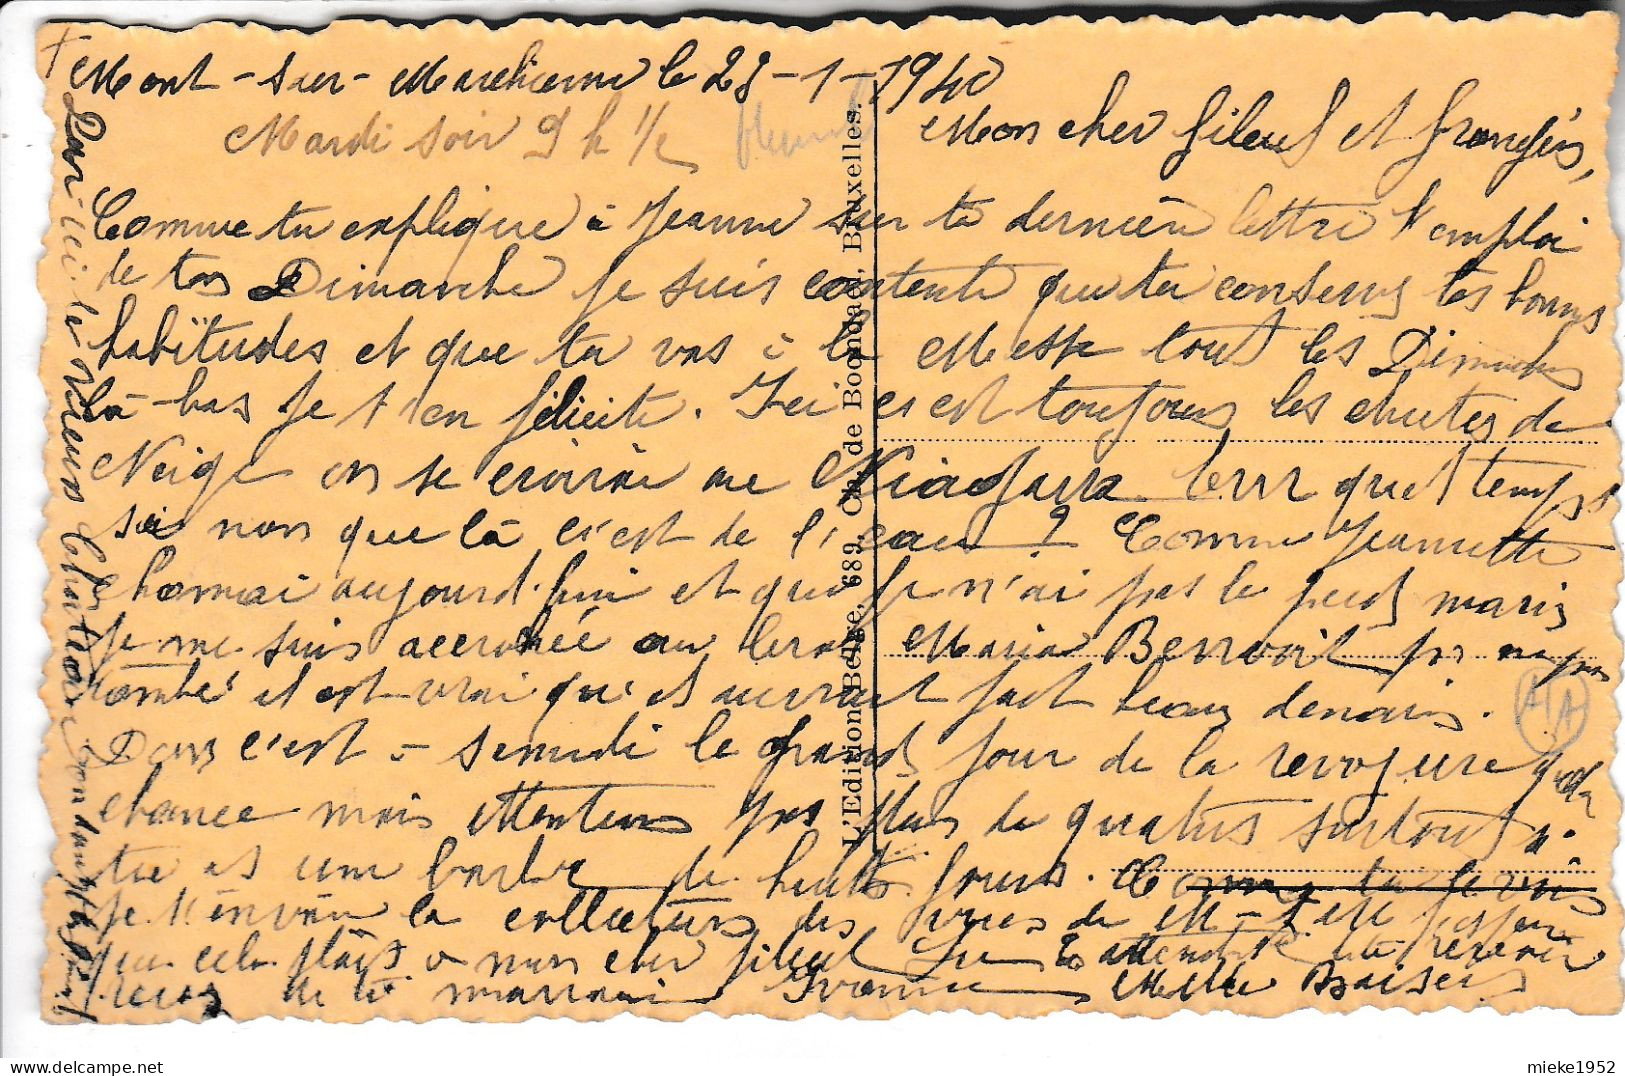 Mont-sur-Marchienne le 23-1-1940
Mardi soir 9 h 1/2
Mon cher filleul et frangin,
Comme tu explique à Jeanne sur ta dernière lettre l'emploi
de tos Dimanche je suis contente que tu conserves tes bonnes
habitudes et que tu vas à la Messe tout les Dimanches
là-bas je t'en félicite. Ici c'est toujours les chutes de
Neige on se croirai au Niagara. leur quel temps
sui non que là c'est de l'eau ? Comme Jeannette
chomai aujourd'hui et que je n'ai pas le pied marin
je me suis accrochée au bras Maria Benvoit pr ne pas
tombé et est vrai qu'il auvrait fait beau denain.
Dans c'est - semedi le grand jour de la revoyure quelle
chance mais attention pas plus de quatres surtout si
tu as une barbe de huits jours.
je t'envoie la collections des vues de M-sur
que cela plaise à mon cher filleul En attendant de te revoir
recois de ta marraine Yvonne Mille Baisers
Par ici le vieux Château
L'Edition Belge, 689, Ch. de Boondael, Bruxelles.
mieke1952